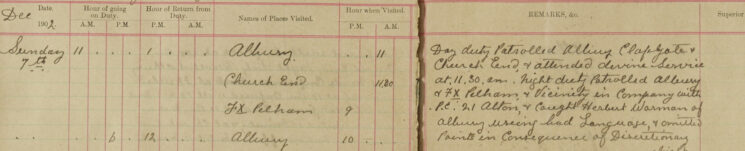 Date. Hour of going on Duty. Hour of Return from Duty. Names of Places Visited. Hour when Visited. REMARKS, &c. Superior
Dec 1902 A.M. P.M. A.M. P.M. P.M. A.M.
Sunday 11 . . 1 . Albury . 11 Day duty Patrolled Albury Clapgate &
7th Church End, & attended divine Service
Church End 11.30 at, 11.30, am. Night duty Patrolled Albury
FX Pelham 9 & FX Pelham & Vicinity in Company with
P.C. 21 Alton & Caught Herbert Warman of
. . . 6 . 12 . . Albury 10 . . Albury useing bad Language, & omitted
Points in Consequence of Discretionary